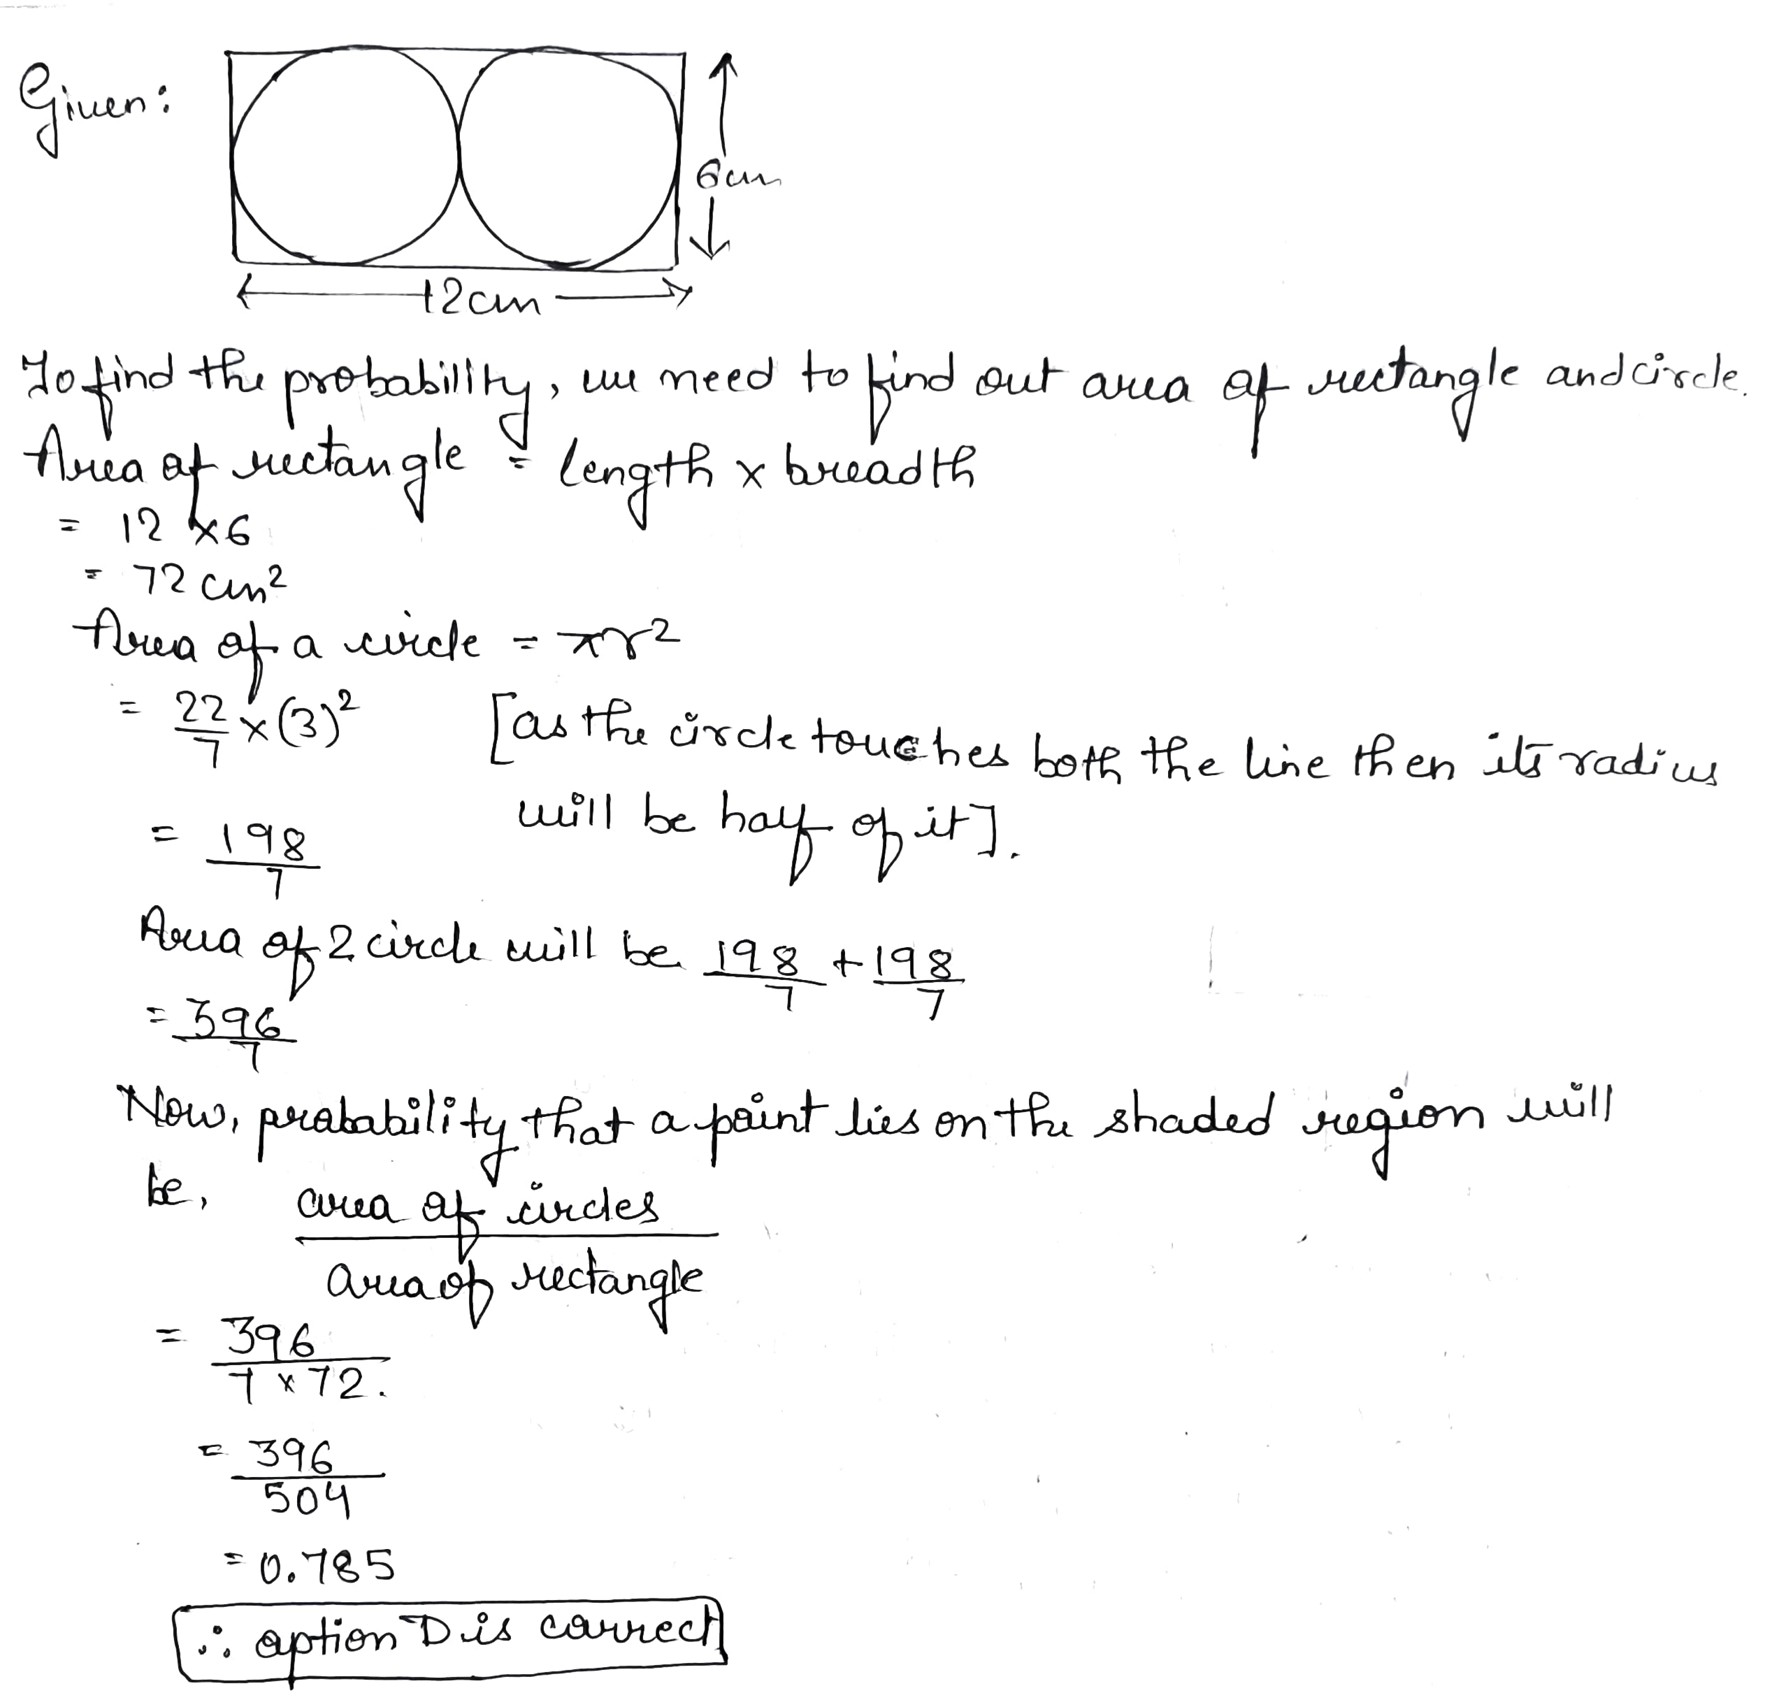 Given:
6cm
12cm
To find the probability, we need to find out area of rectangle and circle.
Area of rectangle = length x breadth
= 12 x 6
= 72 cm²
Area of a circle = πr²
= 22/7 x (3)² [as the circle touches both the line then its radius
will be half of it].
= 198/7
Area of 2 circle will be 198/7 + 198/7
= 396/7
Now, probability that a point lies on the shaded region will
be, area of circles / area of rectangle
= 396 / 7 x 72.
= 396/504
= 0.785
∴ option D is correct